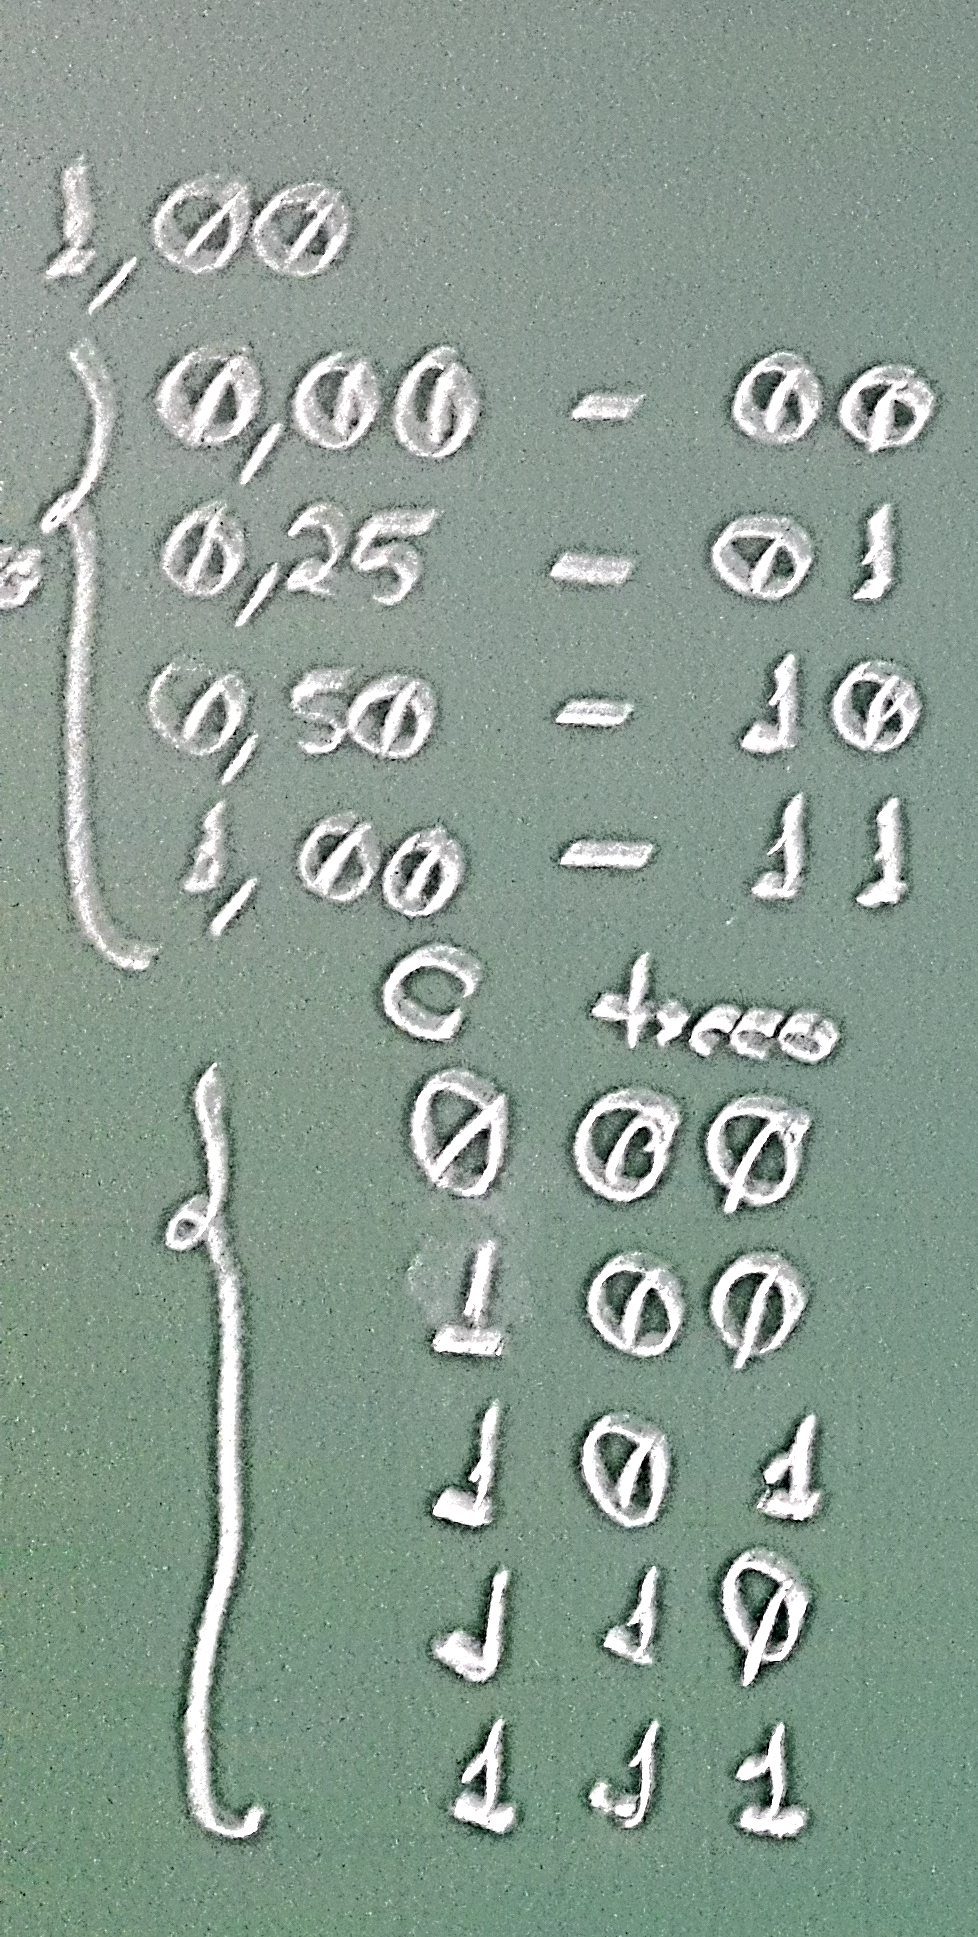 1,00
0,00 - 00
0,25 - 01
0,50 - 10
1,00 - 11
C troco
0 00
1 00
1 01
1 10
1 11